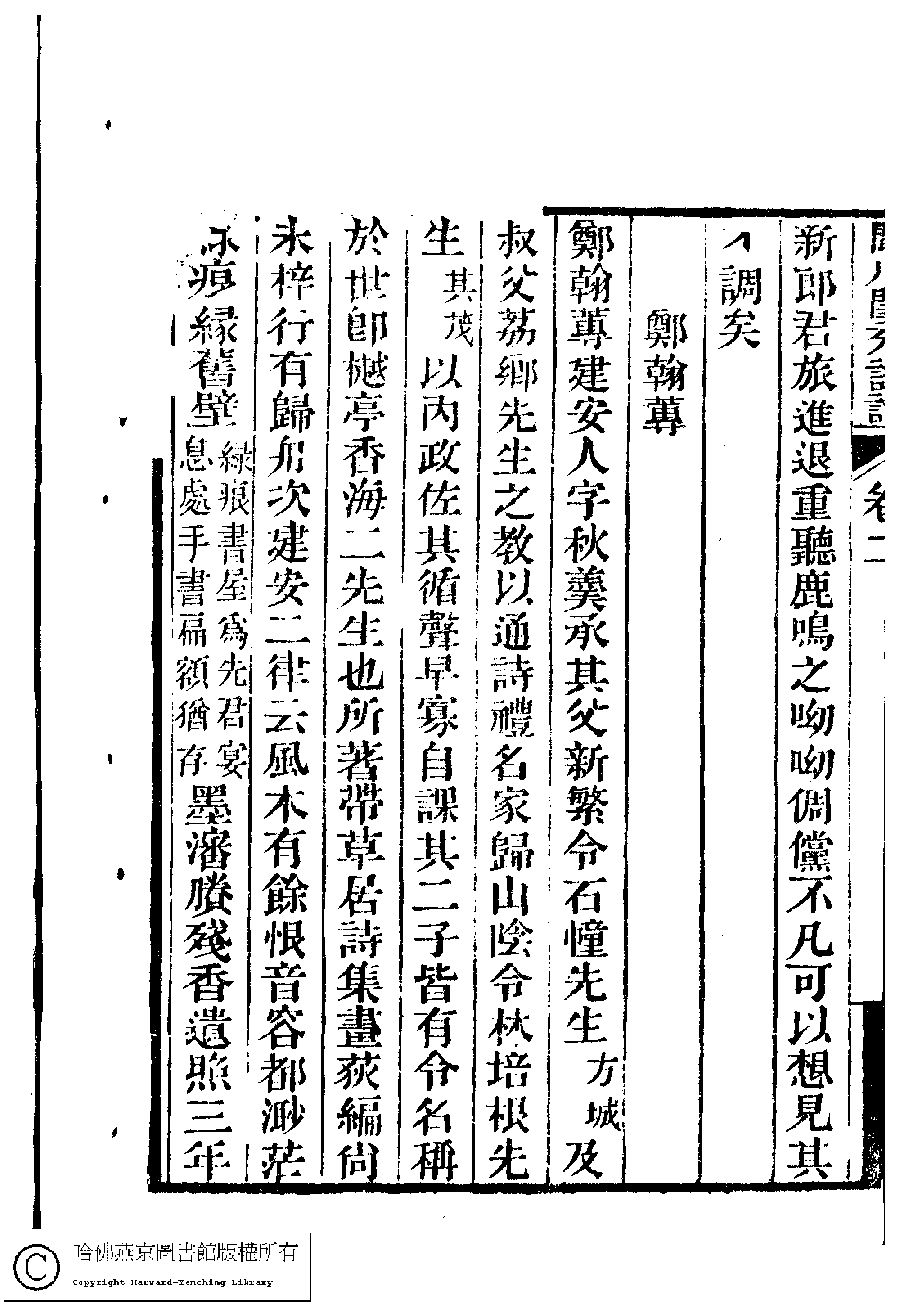 閩川閨秀詩話 卷二
新郎君旅進退重聽鹿鳴之呦呦倜儻不凡可以想見其
調矣
鄭翰蓴
鄭翰蓴建安人字秋羹承其父新繁令石幢先生方城及
叔父荔鄉先生之教以通詩禮名家歸山陰令林培根先
生其茂以內政佐其循聲早寡自課其二子皆有令名稱
於世卽樾亭香海二先生也所著帶草居詩集畫荻編尙
未梓行有歸舟次建安二律云風木有餘恨音容都渺茫
痕緣舊壁綠痕書屋爲先君宴息處手書扁額猶存墨瀋賸殘香遺照三年
哈佛燕京圖書館版權所有
Copyright Harvard-Yenching Library